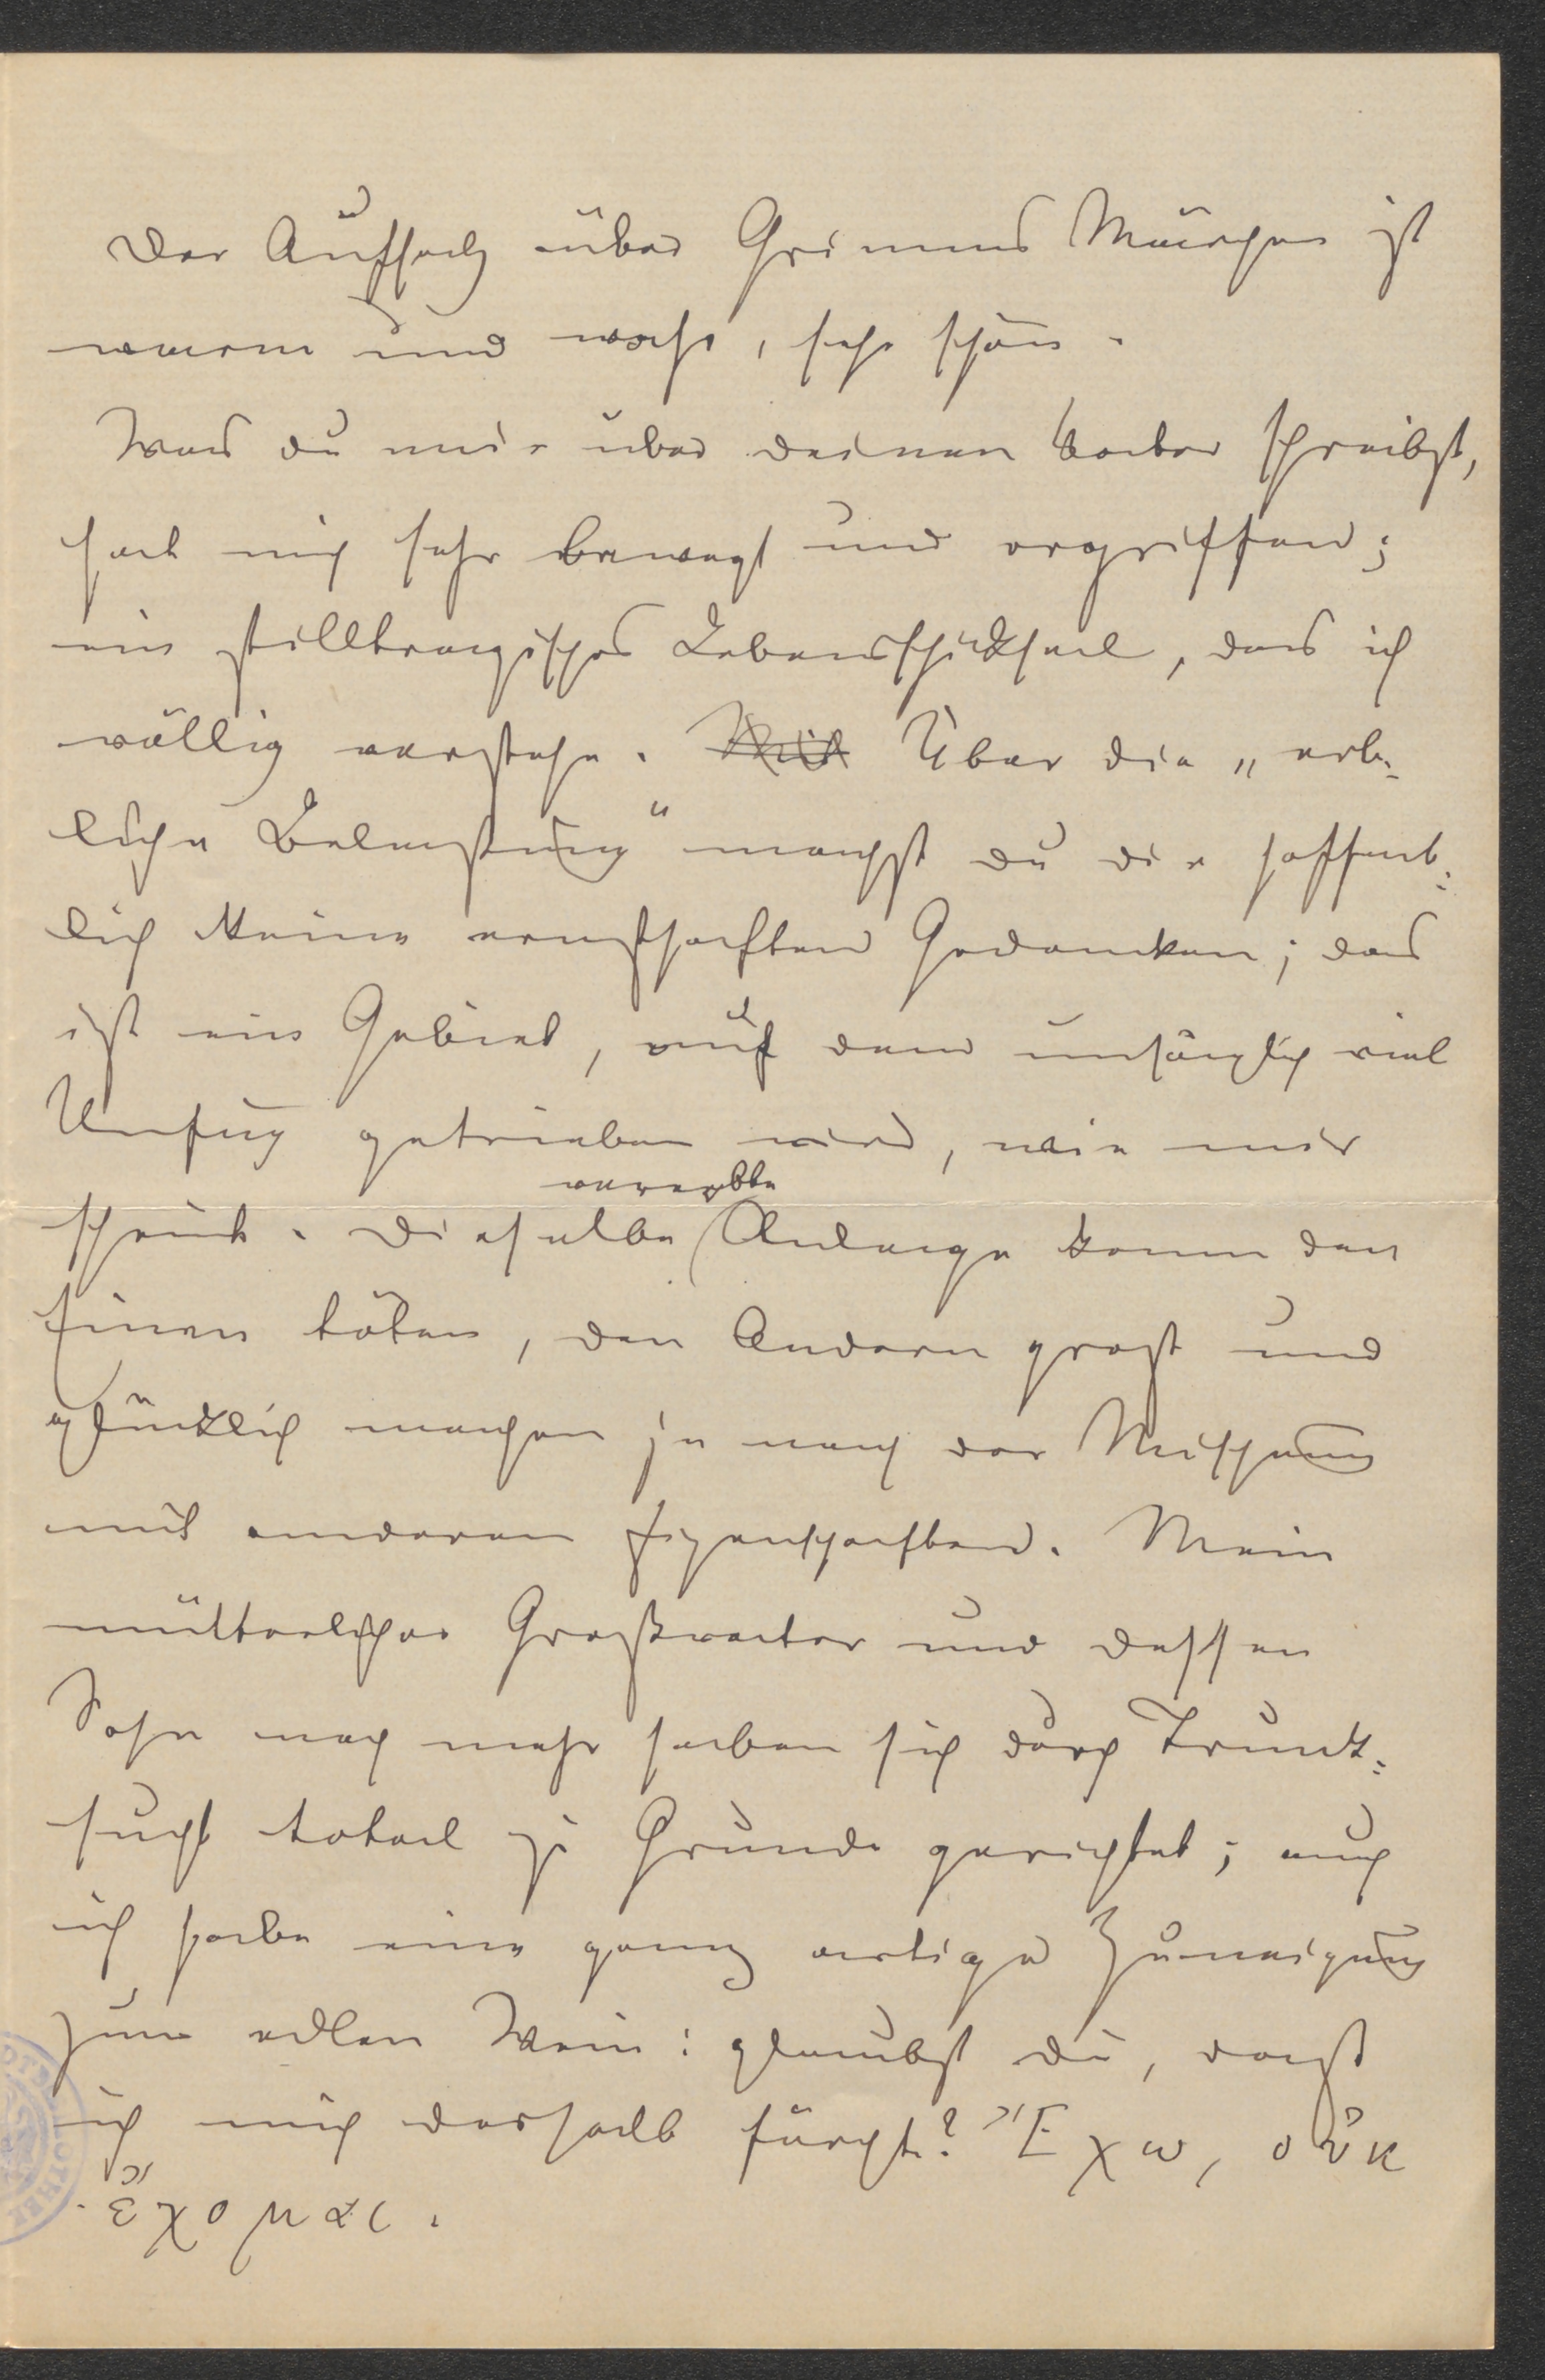 Der Aufsatz über Grimms Märchen ist
warm und wahr, sehr schön.
Was du mir über deinen Vater schreibst,
hat mich sehr bewegt und ergriffen;
ein stilltragisches Lebensschicksal, das ich
völlig verstehe. Mit Über die „erb-
liche Belastung“ machst du dir hoffent-
lich keine ernsthaften Gedanken; das
ist ein Gebiet, auf dem unsäglich viel
Unfug getrieben wird, wie mir
vererbte
scheint. Dieselbe Anlage kann den
Einen töten, den Andern groß und
glücklich machen je nach der Mischung
mit anderen Eigenschaften. Mein
mütterlicher Großvater und dessen
Sohn noch mehr haben sich durch Trunk-
sucht total zu Grunde gerichtet; auch
ich habe eine ganz artige Zuneigung
zum edlen Wein: glaubst du, daß
ich mich deshalb fürchte? Ἔχω, οὐκ
ἔχομαι.